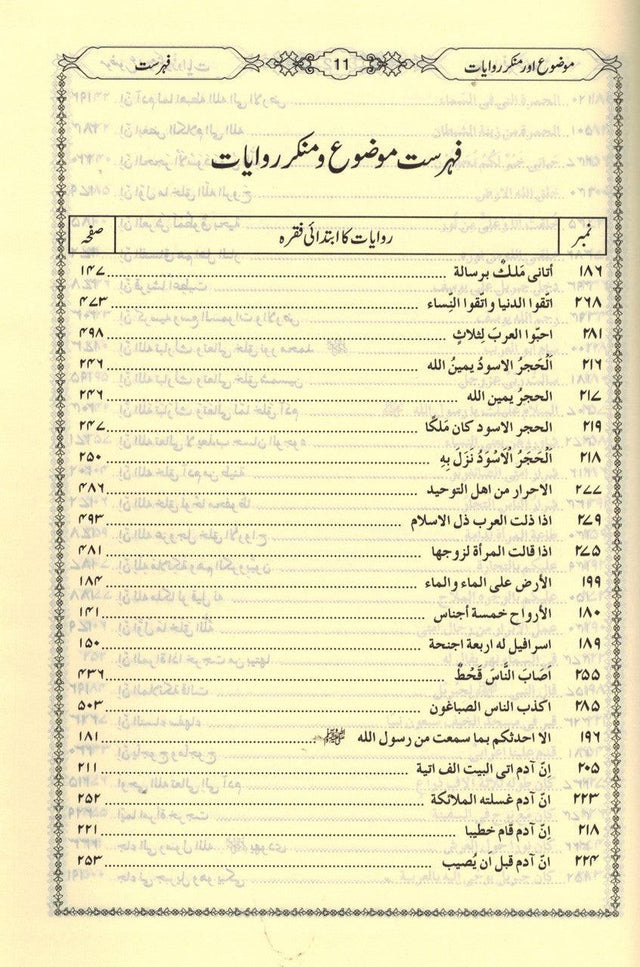 موضوع اور منکر روایات 11 فہرست
فہرست موضوع و منکر روایات
نمبر روایات کا ابتدائی فقرہ صفحہ
۱۸۶ أتانی مَلکٌ برسالة ۱۴۷
۲۶۸ اتّقوا الدنیا واتّقوا النِساء ۴۷۳
۲۸۱ احبّوا العربَ لِثلاثٍ ۴۹۸
۲۱۶ اَلْحَجرُ الاسودُ یمینُ الله ۲۴۶
۲۱۷ الحجرُ یمین الله ۲۴۶
۲۱۹ الحجر الاسود کان مَلَکًا ۲۴۷
۲۱۸ اَلْحَجَرُ الْاَسْوَدُ نَزَلَ بِهِ ۲۵۰
۲۷۷ الاحرار من اهل التوحید ۴۸۶
۲۷۹ اذا ذلت العرب ذل الاسلام ۴۹۳
۲۷۵ اذا قالت المرأة لزوجها ۴۸۱
۱۹۹ الأرض علی الماء والماء ۱۸۴
۱۸۰ الأرواح خمسة أجناس ۱۴۱
۱۸۹ اسرافیل له اربعة اجنحة ۱۵۰
۲۵۵ اَصَابَ النَّاسَ قَحْطٌ ۴۳۶
۲۸۵ اکذب الناس الصباغون ۵۰۳
۱۹۶ الا احدثکم بما سمعت من رسول الله ﷺ ۱۸۱
۲۰۵ اِنّ آدم اتی البیت الف اتیة ۲۱۱
۲۲۳ انّ آدم غسلته الملائکة ۲۵۲
۲۱۸ اِنّ آدم قام خطیبا ۲۲۱
۲۲۴ انّ آدم قبل ان یُصیب ۲۵۳